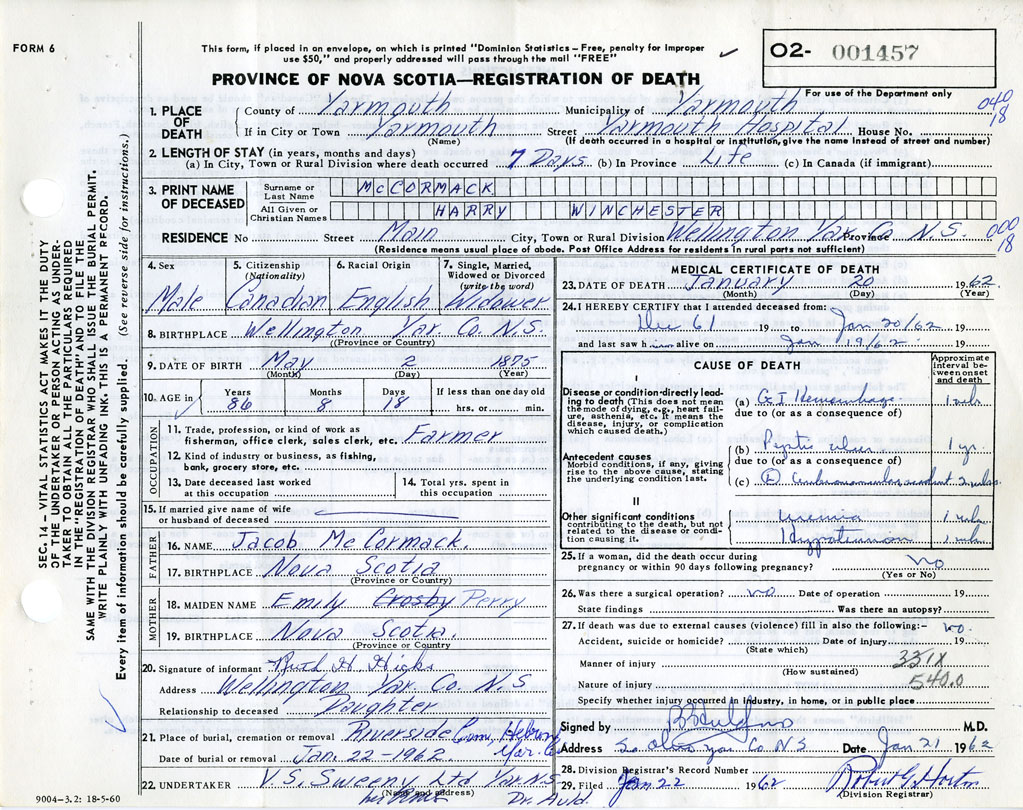 FORM 6
This form, if placed in an envelope, on which is printed "Dominion Statistics – Free, penalty for improper
use $50," and properly addressed will pass through the mail "FREE"
PROVINCE OF NOVA SCOTIA—REGISTRATION OF DEATH
O2- 001457
For use of the Department only
040
18
1. PLACE OF DEATH
County of Yarmouth Municipality of Yarmouth
If in City or Town Yarmouth Street Yarmouth Hospital House No.
(Name) (If death occurred in a hospital or institution, give the name instead of street and number)
2. LENGTH OF STAY (in years, months and days)
(a) In City, Town or Rural Division where death occurred 7 Days (b) In Province Life (c) In Canada (if immigrant)
3. PRINT NAME OF DECEASED
Surname or Last Name McCORMACK
All Given or Christian Names HARRY WINCHESTER
RESIDENCE No Street Main City, Town or Rural Division Wellington Yar. Co Province N.S.
000
18
(Residence means usual place of abode. Post Office Address of residents in rural parts not sufficient)
4. Sex Male
5. Citizenship (Nationality) Canadian
6. Racial Origin English
7. Single, Married, Widowed or Divorced (write the word) Widower
8. BIRTHPLACE Wellington Yar. Co. N.S.
(Province or Country)
9. DATE OF BIRTH May 2 1875
(Month) (Day) (Year)
10. AGE in Years 86 Months 8 Days 18 If less than one day old hrs. or min.
OCCUPATION
11. Trade, profession, or kind of work as fisherman, office clerk, sales clerk, etc. Farmer
12. Kind of industry or business, as fishing, bank, grocery store, etc.
13. Date deceased last worked at this occupation
14. Total yrs. spent in this occupation
15. If married give name of wife or husband of deceased
FATHER
16. NAME Jacob McCormack.
17. BIRTHPLACE Nova Scotia
(Province or Country)
MOTHER
18. MAIDEN NAME Emily Crosby Perry
19. BIRTHPLACE Nova Scotia.
(Province or Country)
20. Signature of informant Ruth H
Address Wellington Yar. Co. N.S
Relationship to deceased Daughter
21. Place of burial, cremation or removal Riverside Cem, Hebron Yar. Co
Date of burial or removal Jan. 22 - 1962
22. UNDERTAKER V.S. Sweeny Ltd Yar. N.S.
(Name and address)
Dr. Auld.
9004-3.2: 18-5-60
MEDICAL CERTIFICATE OF DEATH
23. DATE OF DEATH January 20 1962
(Month) (Day) (Year)
24. I HEREBY CERTIFY that I attended deceased from:
Dec 61 19 to Jan 20/62 19
and last saw him alive on Jan 19/62 19
CAUSE OF DEATH
Approximate interval between onset and death
I
Disease or condition directly leading to death (This does not mean the mode of dying, e.g., heart failure, asthenia, etc. It means the disease, injury, or complication which caused death.)
(a) G I Hemorrhage 1 wk
due to (or as a consequence of)
Antecedent causes
Morbid conditions, if any, giving rise to the above cause, stating the underlying condition last.
(b) Peptic ulcer 1 yr
due to (or as a consequence of)
(c) Cerebrovascular accident 2 wks.
II
Other significant conditions
contributing to the death, but not related to the disease or condition causing it.
Uremia 1 wk
1 wk
25. If a woman, did the death occur during pregnancy or within 90 days following pregnancy? No
(Yes or No)
26. Was there a surgical operation? no Date of operation 19
State findings Was there an autopsy?
27. If death was due to external causes (violence) fill in also the following:- no.
Accident, suicide or homicide? Date of injury 19
(State which)
Manner of injury 331X
(How sustained)
Nature of injury 540.0
Specify whether injury occurred in industry, in home, or in public place
Signed by M.D.
Address So. Ohio Yar Co N S Date Jan 21 1962
28. Division Registrar's Record Number
29. Filed Jan 22 1962 Robert G. Horton
(Division Registrar)
SEC. 14 – VITAL STATISTICS ACT MAKES IT THE DUTY
OF THE UNDERTAKER OR PERSON ACTING AS UNDER-
TAKER TO OBTAIN ALL THE PARTICULARS REQUIRED
IN THE "REGISTRATION OF DEATH" AND TO FILE THE
SAME WITH THE DIVISION REGISTRAR WHO SHALL ISSUE THE BURIAL PERMIT.
WRITE PLAINLY WITH UNFADING INK. THIS IS A PERMANENT RECORD.
Every item of information should be carefully supplied. (See reverse side for instructions.)